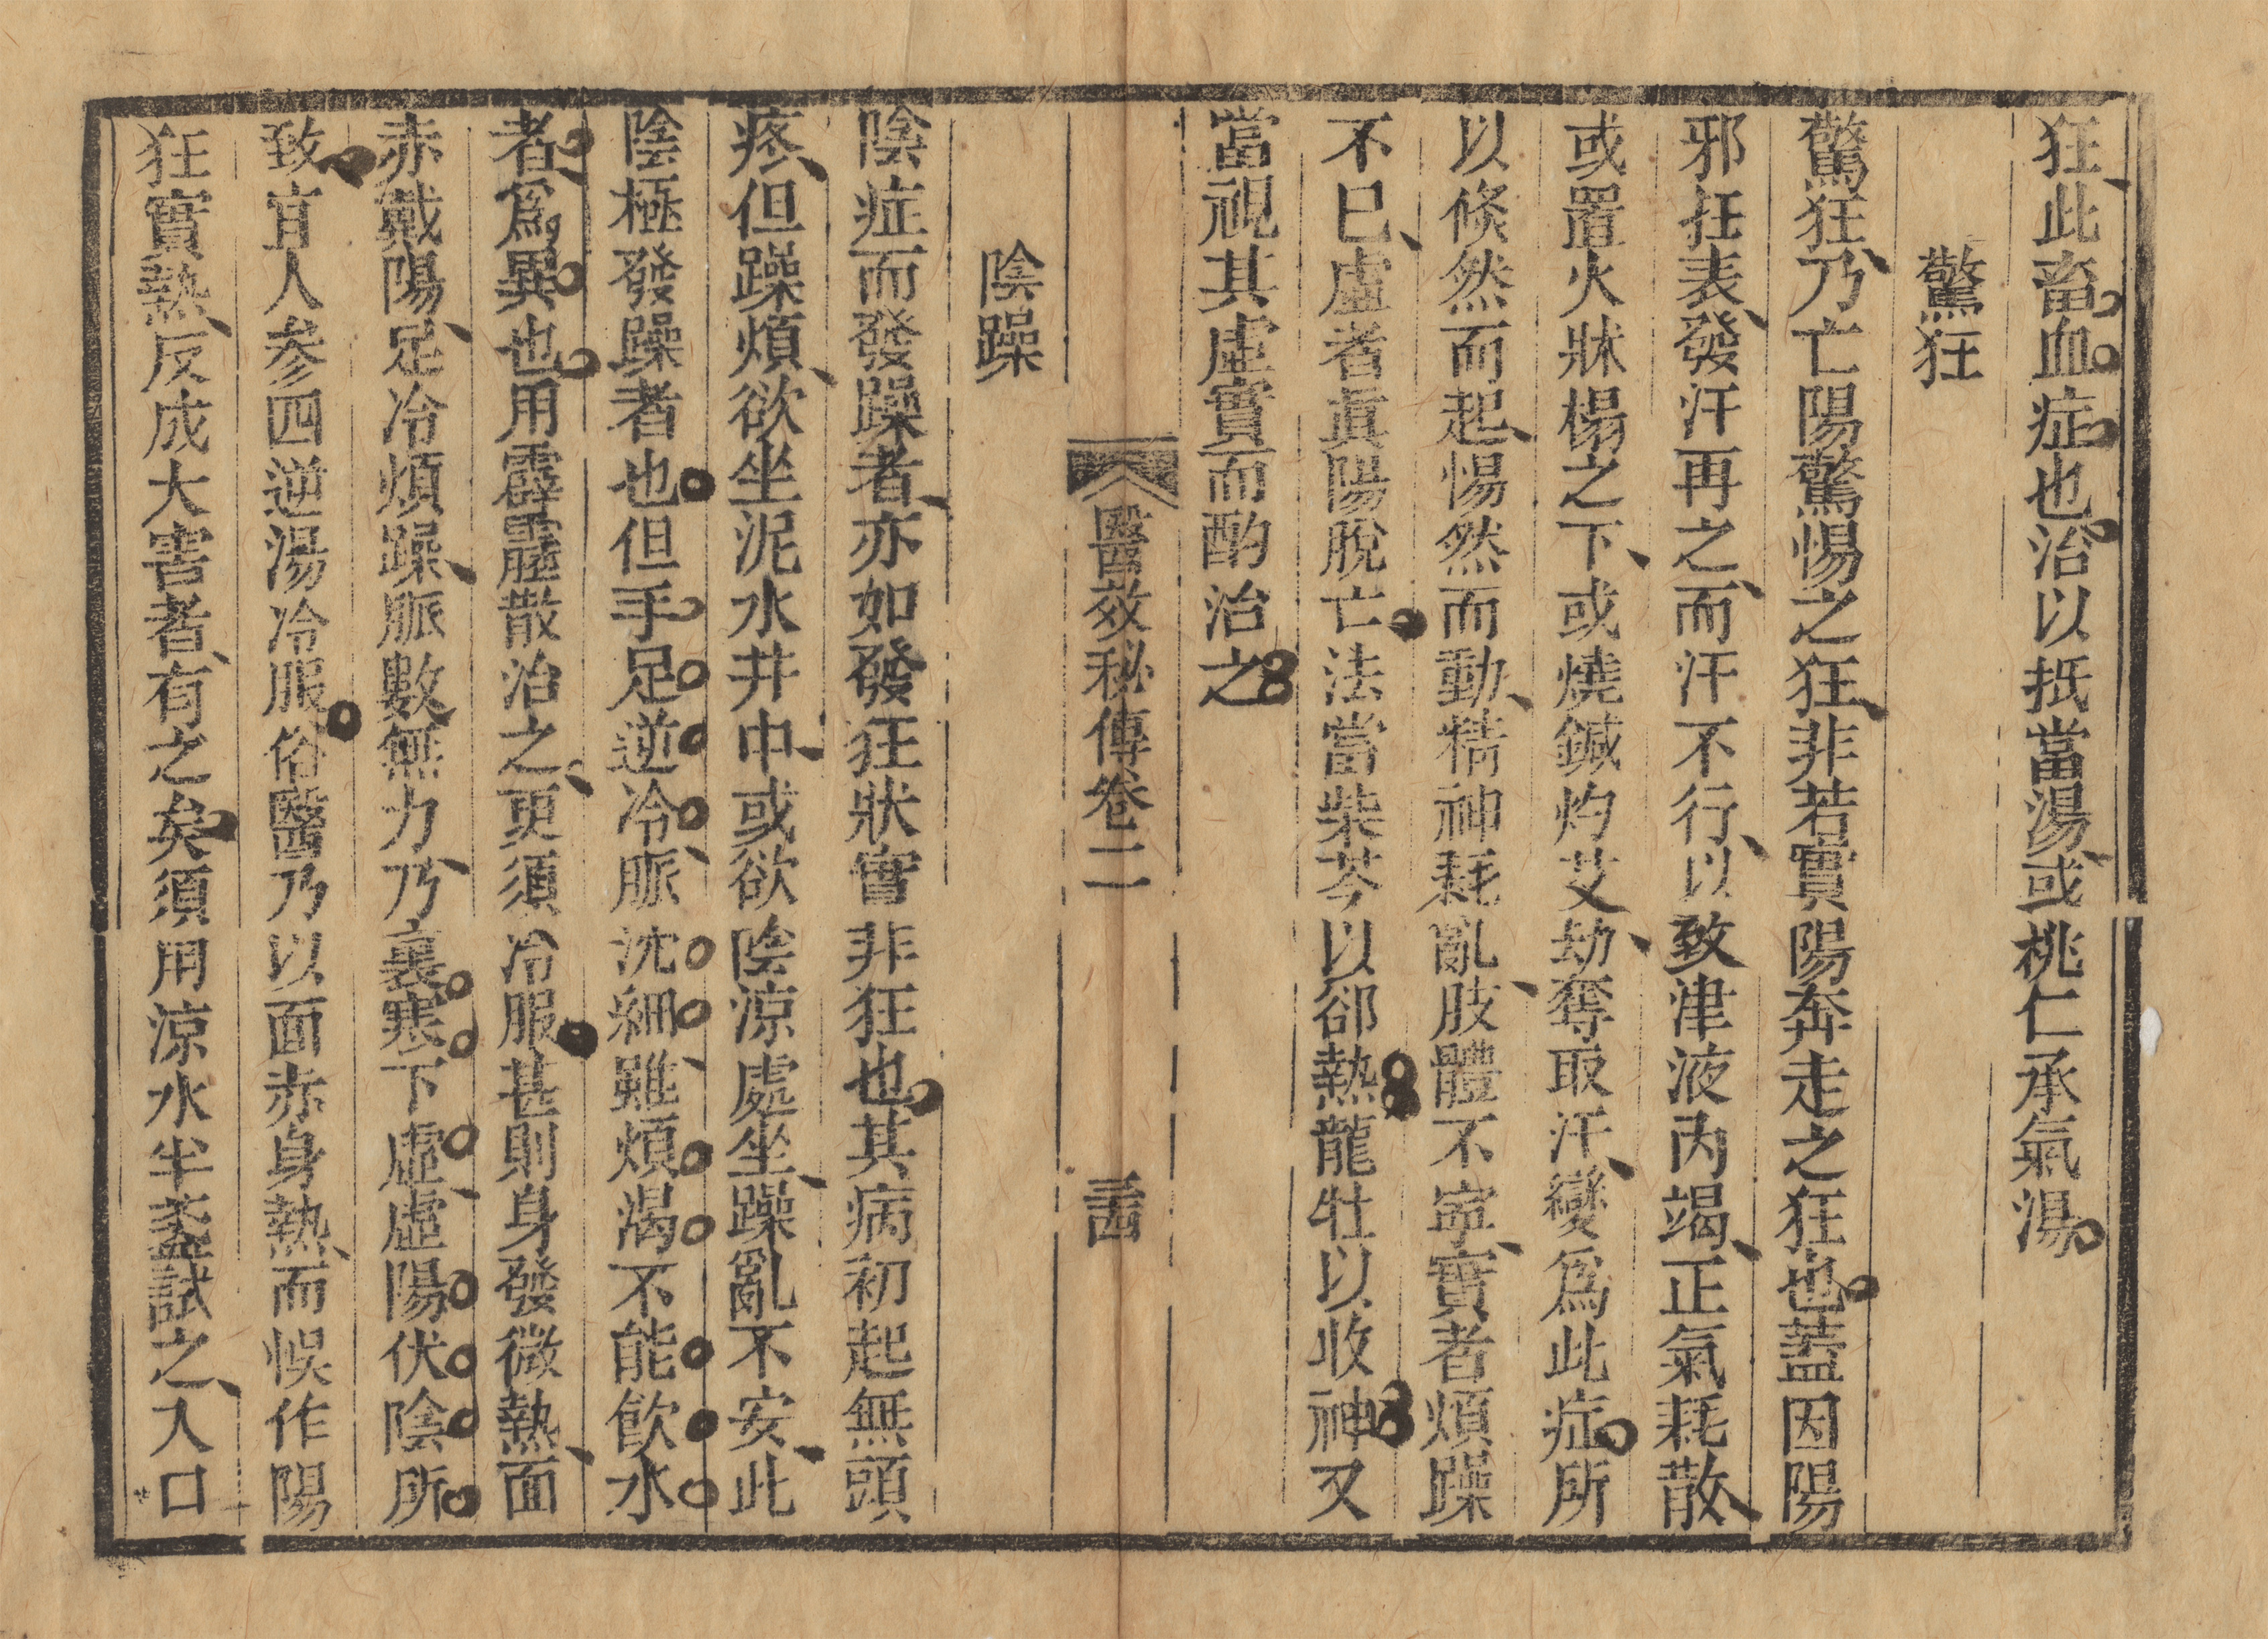 狂、此畜血症也治以抵當湯、或桃仁承氣湯
驚狂
驚狂、乃亡陽驚惕之狂、非若實陽奔走之狂也蓋因陽
邪在表、發汗再之、而汗不行、以致津液內竭、正氣耗散、
或置火牀榻之下、或燒鍼灼艾、劫奪取汗、變爲此症所
以倐然而起、惕然而動、精神耗亂、肢體不寧、實者煩躁
不已、虛者眞陽脫亡法當柴芩以卻熱龍牡以收神又
當視其虛實而酌治之
醫效秘傳卷二 二十四
陰躁
陰症而發躁者、亦如發狂狀實非狂也其病初起無頭
疼、但躁煩、欲坐泥水井中、或欲陰涼處坐、躁亂不安、此
陰極發躁者也但手足逆冷、脈沈細、雖煩渴不能飲水
者、爲異也用霹靂散治之、更須冷服甚則身發微熱、面
赤戴陽、足冷煩躁、脈數無力、乃裏寒下虛、虛陽伏陰所
致宜人參四逆湯冷服俗醫乃以面赤身熱、而悞作陽
狂實熱、反成大害者、有之矣須用涼水半盞試之、入口